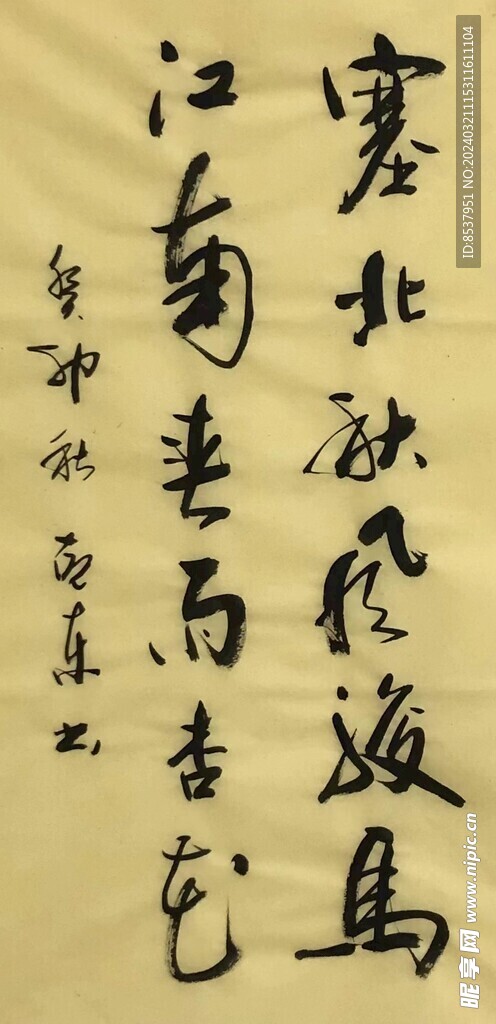 塞北秋风骏马
江南春雨杏花
癸卯秋 东书
ID:8537951 NO:20240321115311611104
昵享网 www.nipic.cn